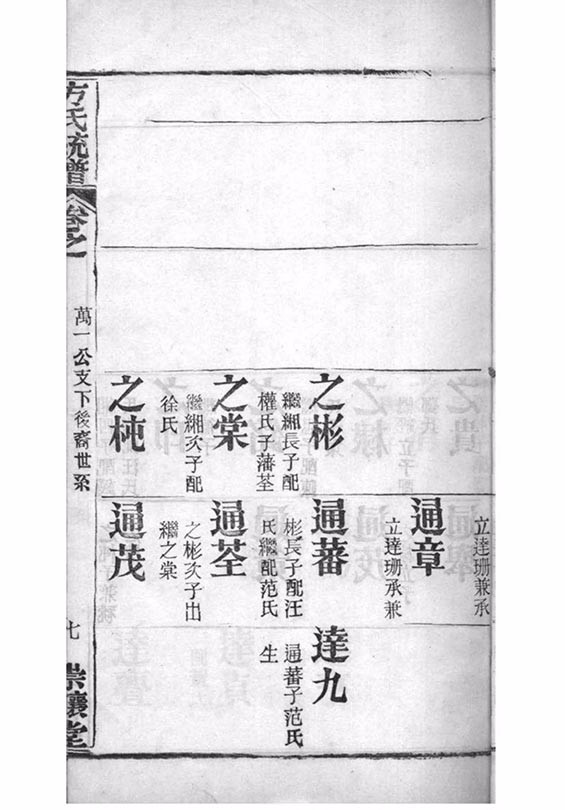 立達珊兼承
通章
立達珊承兼
之彬
繼緗長子配
權氏子藩荃
通蕃
彬長子配汪
氏繼配范氏
達九
通蕃子范氏
生
之棠
繼緗次子配
徐氏
通荃
之彬次子出
繼之棠
之杶
通茂
方氏統譜
卷之
萬一公支下後裔世系
七
崇讓堂